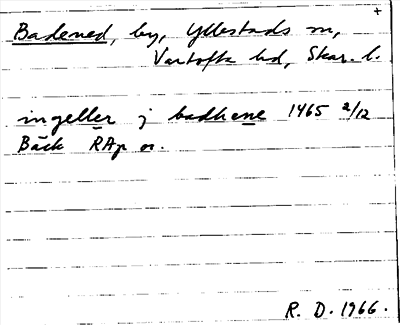 +
Badened, by, Yllestads sn,
Vartofta hd, Skar. l.
ingeller j badhene 1465 2/12
Bäck RAp or.
R. D. 1966.